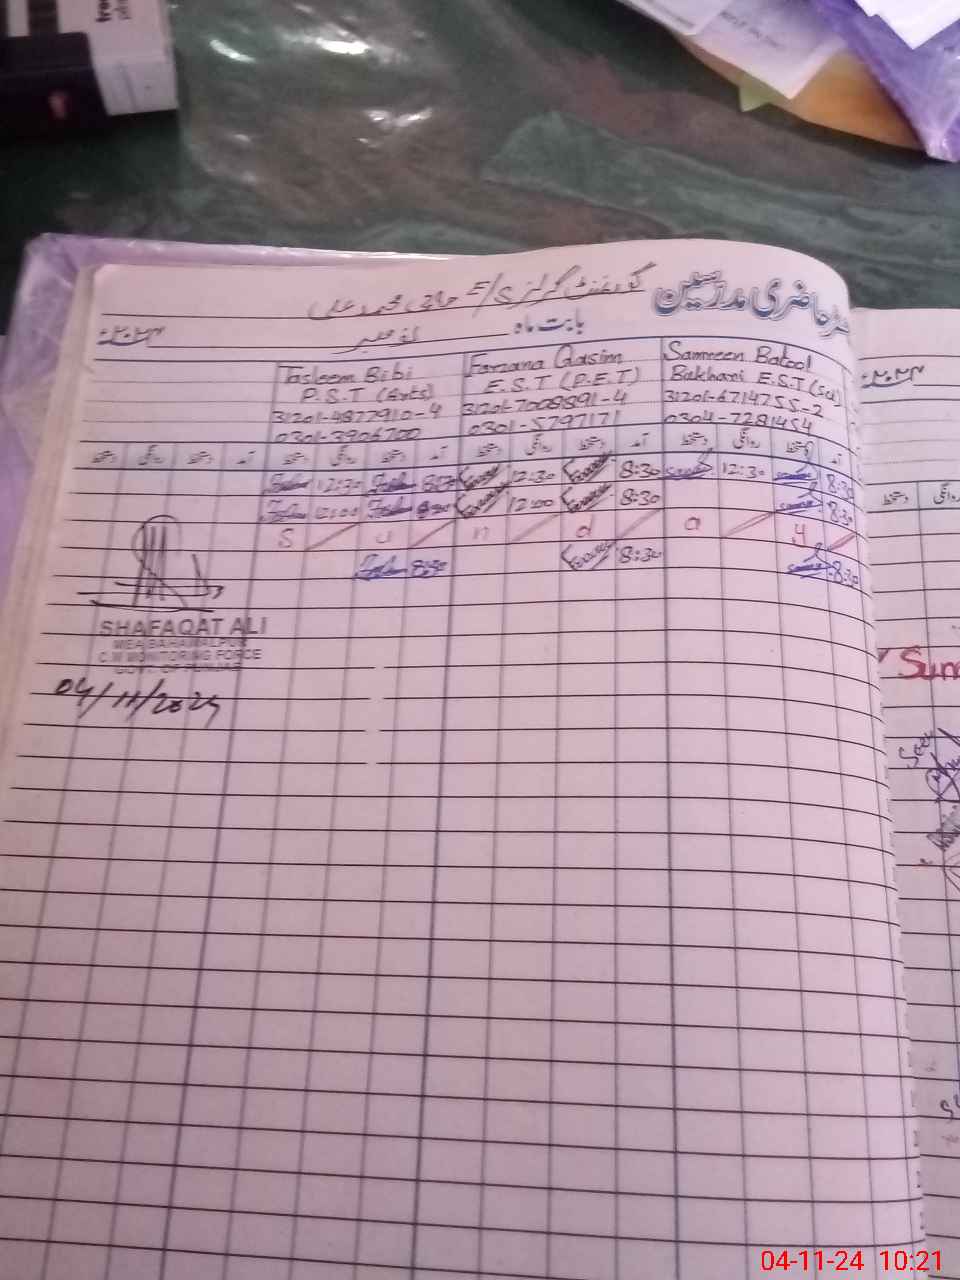 رجسٹر حاضری مدرسین گورنمنٹ گرلز E/S حاجی محمد علی
بابت ماہ نومبر ۲۰۲۴ء
Samreen Batool
Bukhari E.S.T (Sci)
31201-6714755-2
0304-7281454
Farzana Qasim
E.S.T (P.E.T)
31201-7008891-4
0301-5797171
Tasleem Bibi
P.S.T (Arts)
31201-4877910-4
0301-3906700
آمد دستخط روانگی دستخط آمد دستخط روانگی دستخط آمد دستخط روانگی دستخط آمد دستخط روانگی دستخط
8:30 12:30 8:30 12:30 8:30 12:30
8:30 8:30 12:00 8:30 12:00
S u n d a y
8:30 8:30 8:30
SHAFAQAT ALI
MEA BAHAWALPUR
C.M MONITORING FORCE
GOVT. OF PUNJAB
04/11/2024
۲۰۲۴ء
روانگی دستخط
Sun
04-11-24 10:21